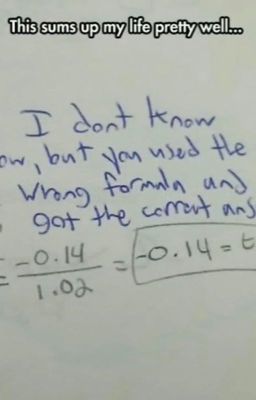 This sums up my life pretty well...
I dont know
ow, but you used the
wrong formula and
got the correct ans
= -0.14 / 1.02 = -0.14 = t